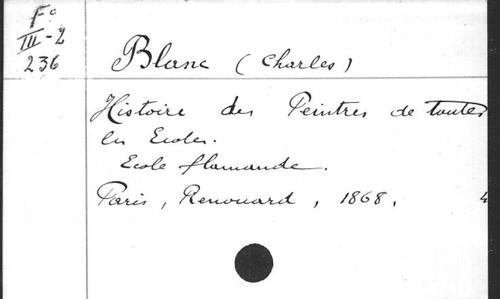 F°
III-2
236
Blanc (Charles)
Histoire des Peintres de toutes
les Ecoles.
Ecole flamande.
Paris, Renouard, 1868. 4